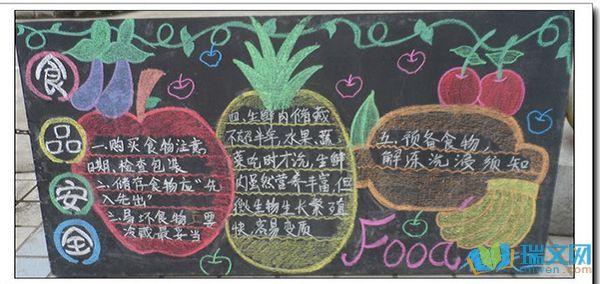 食
品
安
全
一、购买食物注意
日期,检查包装
二、储存食物应"先
入先出"
三、易坏食物,要
冷藏最妥当
四、生鲜肉储藏
不超半年,水果、蔬
菜吃时才洗,生鲜
肉虽然营养丰富,但
微生物生长繁殖
快,容易变质
五、预备食物,
解冻洗浸须知
Food
瑞文网